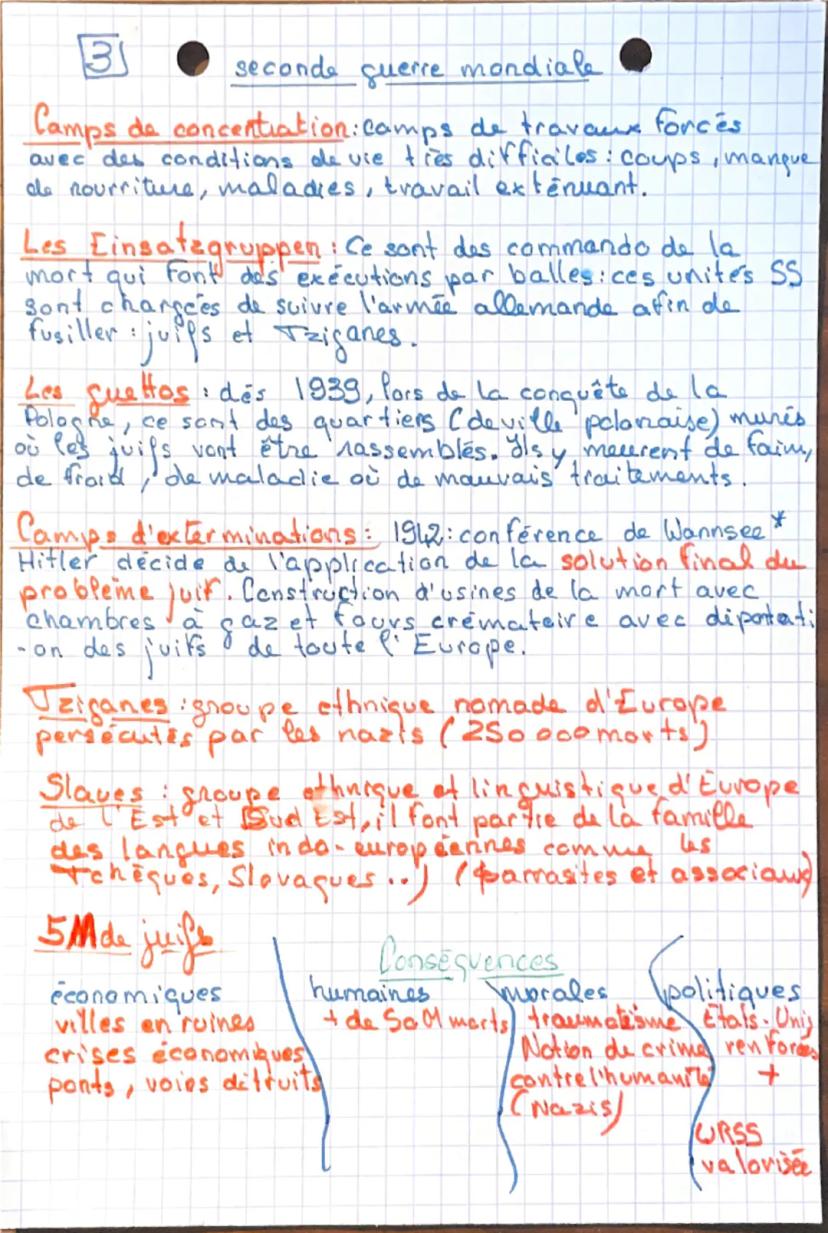 3
seconde guerre mondiale
Camps de concentration : camps de travaux forcés
avec des conditions de vie très difficiles : coups, manque
de nourriture, maladies, travail exténuant.
Les Einsatzgruppen : Ce sont des commando de la
mort qui font des exécutions par balles : ces unités SS
sont chargées de suivre l'armée allemande afin de
fusiller : juifs et Tziganes.
Les guettos : dés 1939, lors de la conquête de la
Pologne, ce sont des quartiers (de ville polonaise) murés
où les juifs vont être rassemblés. Ils y meurent de faim,
de froid, de maladie où de mauvais traitements.
Camps d'exterminations : 1942 : conférence de Wannsee *
Hitler décide de l'application de la solution final du
problème juif. Construction d'usines de la mort avec
chambres à gaz et fours crémateire avec déportati
-on des juifs de toute l'Europe.
Tziganes : groupe ethnique nomade d'Europe
persécutés par les nazis (250 000 morts)
Slaves : groupe ethnique et linguistique d'Europe
de l'Est et Sud Est, il font partie de la famille
des langues indo-européennes comme les
Tchèques, Slovaques ..) (parrasites et associaux)
5M de juifs
Conséquences
économiques humaines morales politiques
villes en ruines + de 50M morts traumatisme États-Unis
crises économiques Notion de crime renforcés
ponts, voies détruits contre l'humanité +
(Nazis)
URSS
valorisée